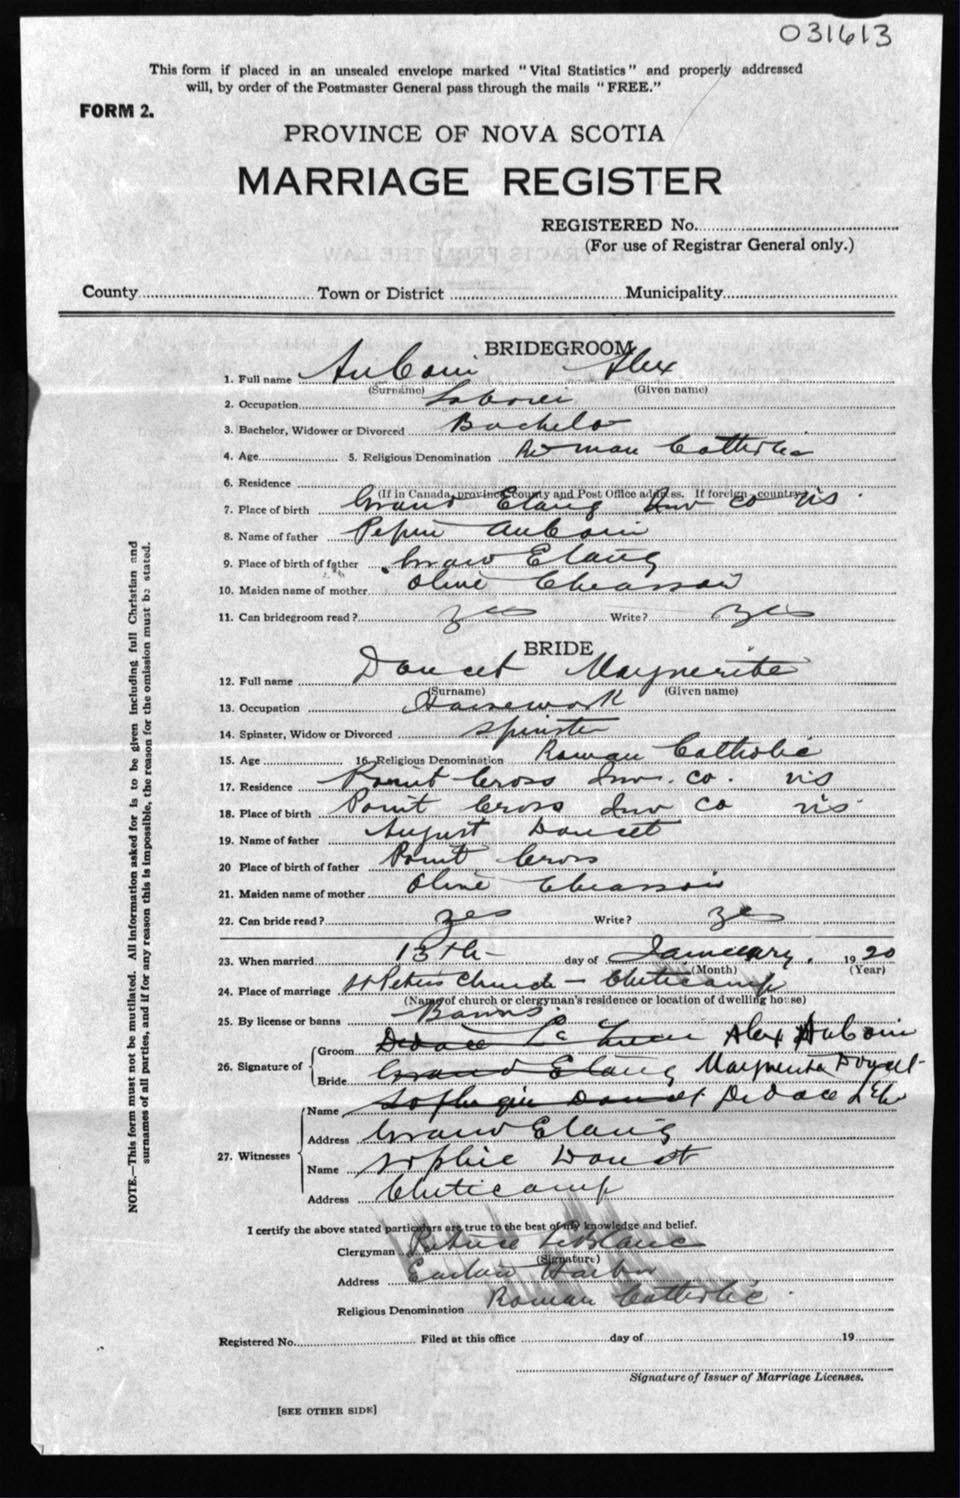 031613
This form if placed in an unsealed envelope marked "Vital Statistics" and properly addressed
will, by order of the Postmaster General pass through the mails "FREE."
FORM 2.
PROVINCE OF NOVA SCOTIA
MARRIAGE REGISTER
REGISTERED No.
(For use of Registrar General only.)
County Town or District Municipality
BRIDEGROOM
1. Full name AuCoin Alex
(Surname) (Given name)
2. Occupation Laborer
3. Bachelor, Widower or Divorced Bachelor
4. Age 5. Religious Denomination Roman Catholic
6. Residence
(If in Canada, province, county and Post Office address. If foreign, country)
7. Place of birth Grand Etang Inv Co NS
8. Name of father AuCoin
9. Place of birth of father Grand Etang
10. Maiden name of mother Olive Chiasson
11. Can bridegroom read? yes Write? yes
BRIDE
12. Full name Doucet Marguerite
(Surname) (Given name)
13. Occupation Housework
14. Spinster, Widow or Divorced Spinster
15. Age 16. Religious Denomination Roman Catholic
17. Residence Point Cross Inv. Co. NS
18. Place of birth Point Cross Inv Co NS
19. Name of father August Doucet
20 Place of birth of father Point Cross
21. Maiden name of mother Olive Chiasson
22. Can bride read? yes Write? yes
23. When married 13th day of January, 1920
(Month) (Year)
24. Place of marriage St Peters Church - Cheticamp
(Name of church or clergyman's residence or location of dwelling house)
25. By license or banns Banns
26. Signature of
Groom Alex AuCoin
Bride Grand Etang Marguerite Doucet
27. Witnesses
Name Doucet
Address Grand Etang
Name Sophie Doucet
Address Cheticamp
I certify the above stated particulars are true to the best of my knowledge and belief.
Clergyman LeBlanc
(Signature)
Address Eastern Harbor
Religious Denomination Roman Catholic
Registered No. Filed at this office day of 19
Signature of Issuer of Marriage Licenses.
[SEE OTHER SIDE]
NOTE.—This form must not be mutilated. All information asked for is to be given including full Christian and
surnames of all parties, and if for any reason this is impossible, the reason for the omission must be stated.